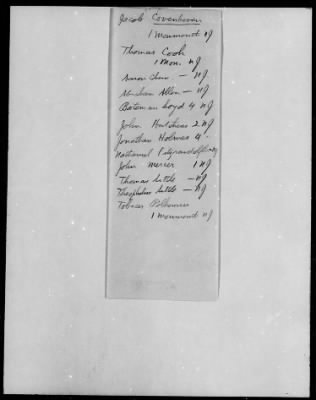 Jacob Covenhoven
1 Monmouth NJ
Thomas Cook
1 Mon. NJ
Aaron - NJ
Abraham Allen - NJ
Bateman Loyd 4 NJ
John Hutchins 2 NJ
Jonathan Holmes 4
Nathaniel Fitzrandolph
John Mercer 1 NJ
Thomas Little - NJ
Theophilus Little - NJ
Tobias Polhemus
1 Monmouth NJ